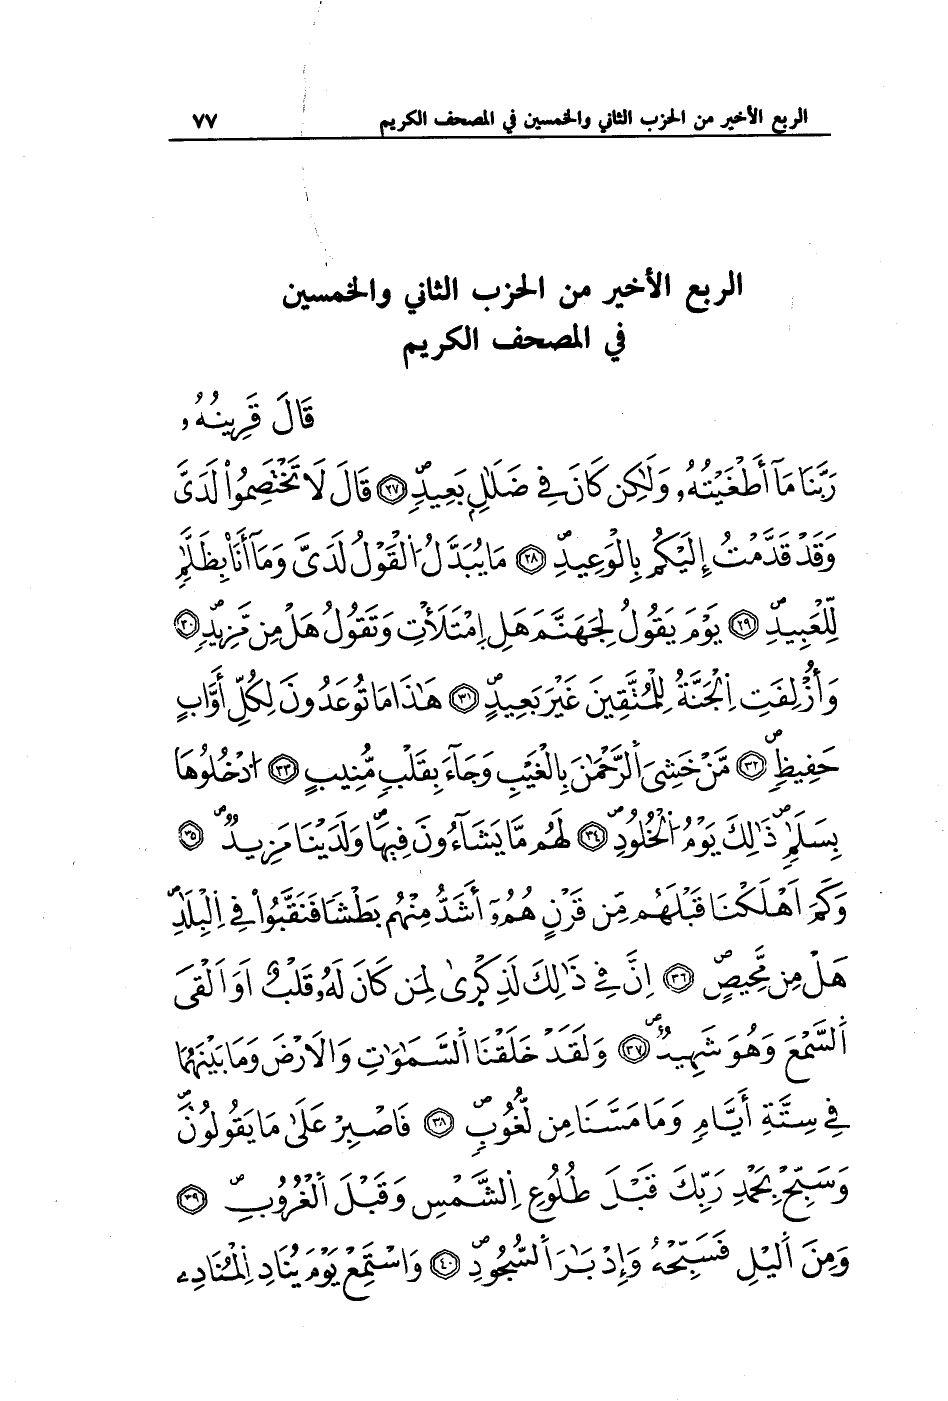 الربع الأخير من الحزب الثاني والخمسين في المصحف الكريم ٧٧
الربع الأخير من الحزب الثاني والخمسين
في المصحف الكريم
قَالَ قَرِينُهُۥ
رَبَّنَا مَآ أَطْغَيْتُهُۥ وَلَٰكِن كَانَ فِي ضَلَٰلِۢ بَعِيدٖۖ ٢٧ قَالَ لَا تَخْتَصِمُواْ لَدَيَّ
وَقَدْ قَدَّمْتُ إِلَيْكُم بِالْوَعِيدِۖ ٢٨ مَا يُبَدَّلُ اُ۬لْقَوْلُ لَدَيَّ وَمَآ أَنَا۠ بِظَلَّٰمٖ
لِّلْعَبِيدِۖ ٢٩ يَوْمَ يَقُولُ لِجَهَنَّمَ هَلِ اِ۪مْتَلَأْتِ وَتَقُولُ هَلْ مِن مَّزِيدٖۖ ٣٠
وَأُزْلِفَتِ اِ۬لْجَنَّةُ لِلْمُتَّقِينَ غَيْرَ بَعِيدٍۖ ٣١ هَٰذَا مَا تُوعَدُونَ لِكُلِّ أَوَّابٍ
حَفِيظٖۖ ٣٢ مَّنْ خَشِيَ اَ۬لرَّحْمَٰنَ بِالْغَيْبِ وَجَآءَ بِقَلْبٖ مُّنِيبٍ ٣٣ اُ۟دْخُلُوهَا
بِسَلَٰمٖۖ ذَٰلِكَ يَوْمُ اُ۬لْخُلُودِۖ ٣٤ لَهُم مَّا يَشَآءُونَ فِيهَاۖ وَلَدَيْنَا مَزِيدٞۖ ٣٥
وَكَمَ اَهْلَكْنَا قَبْلَهُم مِّن قَرْنٍ هُمُۥٓ أَشَدُّ مِنْهُم بَطْشاٗ فَنَقَّبُواْ فِي اِ۬لْبِلَٰدِۖ
هَلْ مِن مَّحِيصٍۖ ٣٦ اِنَّ فِي ذَٰلِكَ لَذِكْرَىٰ لِمَن كَانَ لَهُۥ قَلْبٌ اَوَ اَلْقَى
اَ۬لسَّمْعَ وَهُوَ شَهِيدٞۖ ٣٧ وَلَقَدْ خَلَقْنَا اَ۬لسَّمَٰوَٰتِ وَالَارْضَ وَمَا بَيْنَهُمَا
فِي سِتَّةِ أَيَّامٖ وَمَا مَسَّنَا مِن لُّغُوبٖۖ ٣٨ فَاصْبِرْ عَلَىٰ مَا يَقُولُونَۖ
وَسَبِّحْ بِحَمْدِ رَبِّكَ قَبْلَ طُلُوعِ اِ۬لشَّمْسِ وَقَبْلَ اَ۬لْغُرُوبِۖ ٣٩
وَمِنَ اَ۬ليْلِ فَسَبِّحْهُ وَإِدْبَٰرَ اَ۬لسُّجُودِۖ ٤٠ وَاسْتَمِعْ يَوْمَ يُنَادِ اِ۬لْمُنَادِۦ